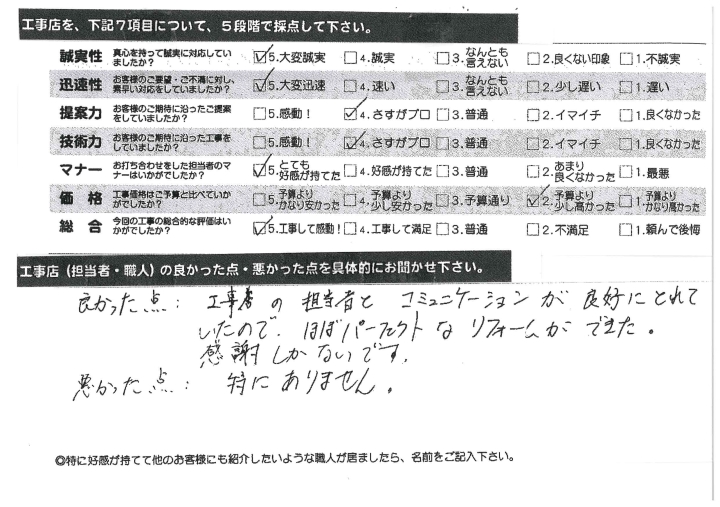 工事店を、下記7項目について、5段階で採点して下さい。
誠実性 真心を持って誠実に対応していましたか? ☑5.大変誠実 □4.誠実 □3.なんとも言えない □2.良くない印象 □1.不誠実
迅速性 お客様のご要望・ご不満に対し、素早い対応をしていましたか? ☑5.大変迅速 □4.速い □3.なんとも言えない □2.少し遅い □1.遅い
提案力 お客様のご期待に沿ったご提案をしていましたか? □5.感動! ☑4.さすがプロ □3.普通 □2.イマイチ □1.良くなかった
技術力 お客様のご期待に沿った工事をしていましたか? □5.感動! ☑4.さすがプロ □3.普通 □2.イマイチ □1.良くなかった
マナー お打ち合わせをした担当者のマナーはいかがでしたか? ☑5.とても好感が持てた □4.好感が持てた □3.普通 □2.あまり良くなかった □1.最悪
価格 工事価格はご予算と比べていかがでしたか? □5.予算よりかなり安かった □4.予算より少し安かった □3.予算通り ☑2.予算より少し高かった □1.予算よりかなり高かった
総合 今回の工事の総合的な評価はいかがでしたか? ☑5.工事して感動! □4.工事して満足 □3.普通 □2.不満足 □1.頼んで後悔
工事店(担当者・職人)の良かった点・悪かった点を具体的にお聞かせ下さい。
良かった点: 工事店の担当者とコミュニケーションが良好にとれて
いたので、ほぼパーフェクトなリフォームができた。
感謝しかないです。
悪かった点: 特にありません。
◎特に好感が持てて他のお客様にも紹介したいような職人が居ましたら、名前をご記入下さい。